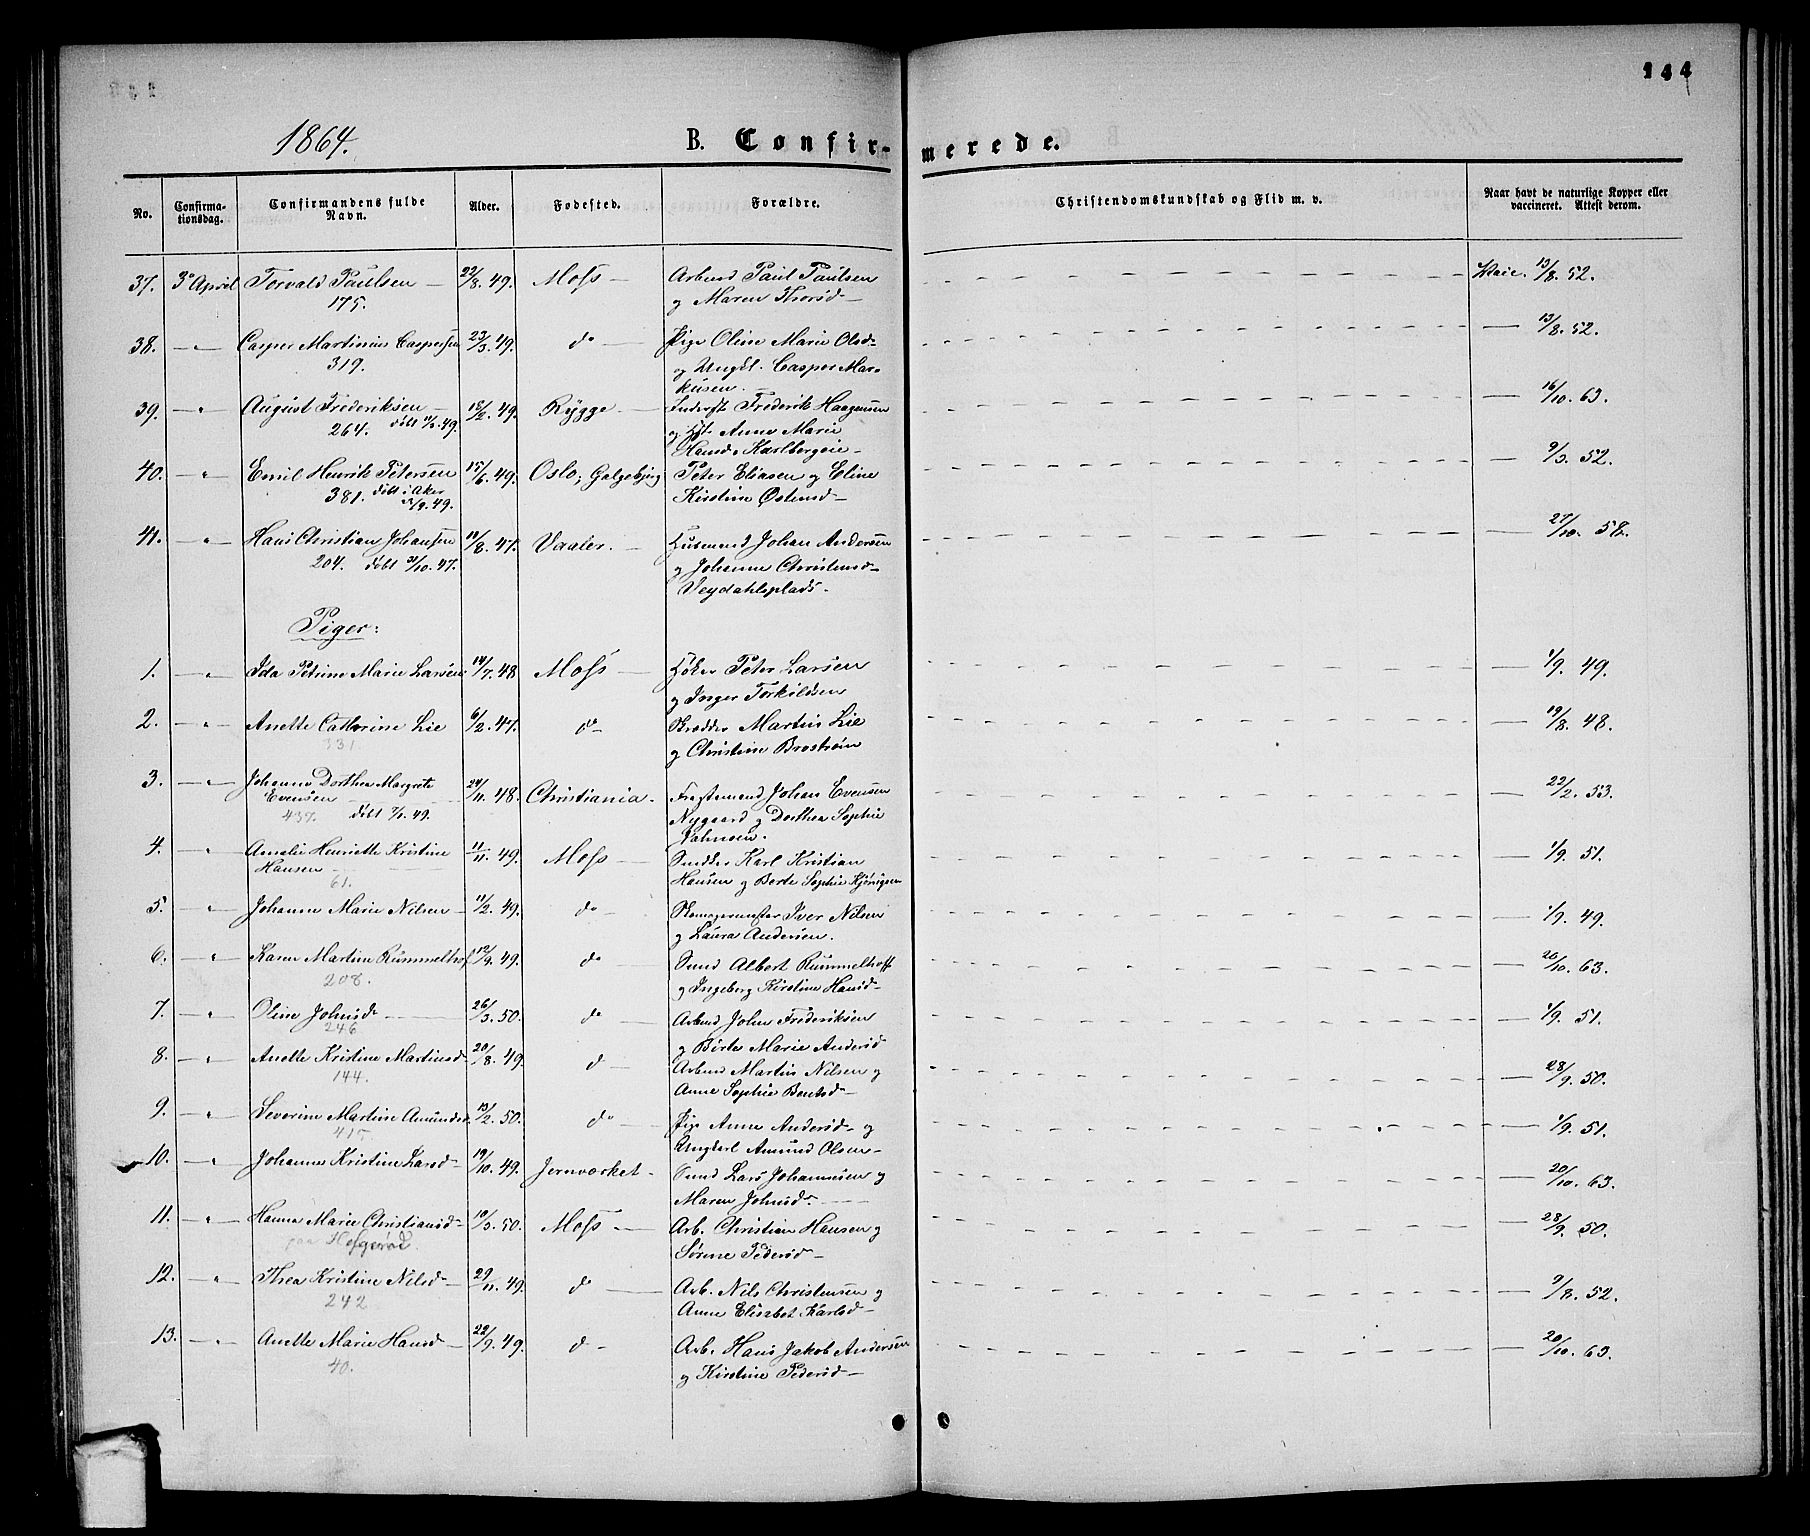 144
1864.
B. Confirmerede.
No.
Confirmationsdag.
Confirmandens fulde Navn.
Alder.
Fødested.
Forældre.
Christendomskundskab og Flid m. v.
Naar havt de naturlige Kopper eller vaccineret. Attest derom.
37. 3' April Torvald Paulsen — 22/8. 49. Moss — Arbmd Paul Paulsen 13/8. 52.
175. og Maren Thorsd —
38. — " — Casper Martinius Caspersen 23/3. 49. do — Pige Oline Marie Olsd — 13/8. 52.
319. og Ungkl. Casper Mar-
kusen.
39. — " — August Frederiksen 18/2. 49. Rygge — Inderst Frederik Haagensen 16/10. 63.
264. døbt 49. og Anne Marie
Hansd. Karlbergeie —
40. — " — Emil Henrik Petersen 15/6. 49. Oslo, Galgebjerg Peter Eliasen og Eline 9/3. 52.
381. døbt i Aker Kirstine Østensd —
/9. 49.
41. — " — Hans Christian Johansen 18/8. 47. Vaaler. — Husmand Johan Andersen 27/10. 58.
204. døbt 31/10. 47. og Johanne Christensd —
Veydahlsplads.
Piger:
1. — " — Ida Petrine Marie Larsen 14/7. 48 Moss — Høker Peter Larsen — 1/9. 49.
og Inger Torkildsen
2. — " — Anette Cathrine Lie 6/2. 47. do — Skrædder Martin Lie — 19/8. 48.
331. og Christine Brostrøm
3. — " — Johanne Dorthea Margrete 24/11. 48. Christiania. Fragtemand Johan Evensen — 22/2. 53.
Evensen Nygaard og Dorthea Sophie
437. døbt 49.
4. — " — Amalie Henriette Kristine 11/11. 49. Moss — Snedker Karl Kristian — 1/9. 51.
Hansen — Hansen og Berte Sophie
61.
5. — " — Johanne Marie Nilsen — 11/2. 49. do — Skomagermester Iver Nilsen — 1/9. 49.
og Laura Andersen.
6. — " — Karen Martine Rummelhof 12/9. 49. do Smed Albert Rummelhoff — 20/10. 63.
208. og Ingeborg Kirstine Hansd —
7. — " — Oline Johnsd — 26/3. 50. do — Arbmd John Frederiksen — 1/9. 51.
246 og Birte Marie Andersd
8. — " — Anette Kristine Martinsd — 20/8. 49. d — Arbmd Martin Nilsen og — 28/9. 50.
144. Anne Sophie Bentsd —
9. — " — Severine Martine Amundsd. 13/2. 50. do Pige Anne Andersd — og — 1/9. 51.
415 Ungkarl Amund Olsen —
10. — " — Johanne Kristine Larsd — 19/10. 49. Jernværket — Smed Lars Johannesen og — 20/10. 63.
Maren Johnsd —
11. — " — Hanna Marie Christiansd — 10/3. 50. Moss — Arb. Christian Hansen og — 28/9. 50.
paa Hofgerød. Sørine Pedersd —
12. — " — Thea Kristine Nilsd — 29/11. 49. do — Arb. Nils Christensen og — 9/8. 52.
242 Anne Elisabet Karlsd —
13. — " — Anette Marie Hansd — 22/9. 49. d — Arb. Hans Jakob Andersen — 20/10. 63.
40. og Kirstine Pedersd —